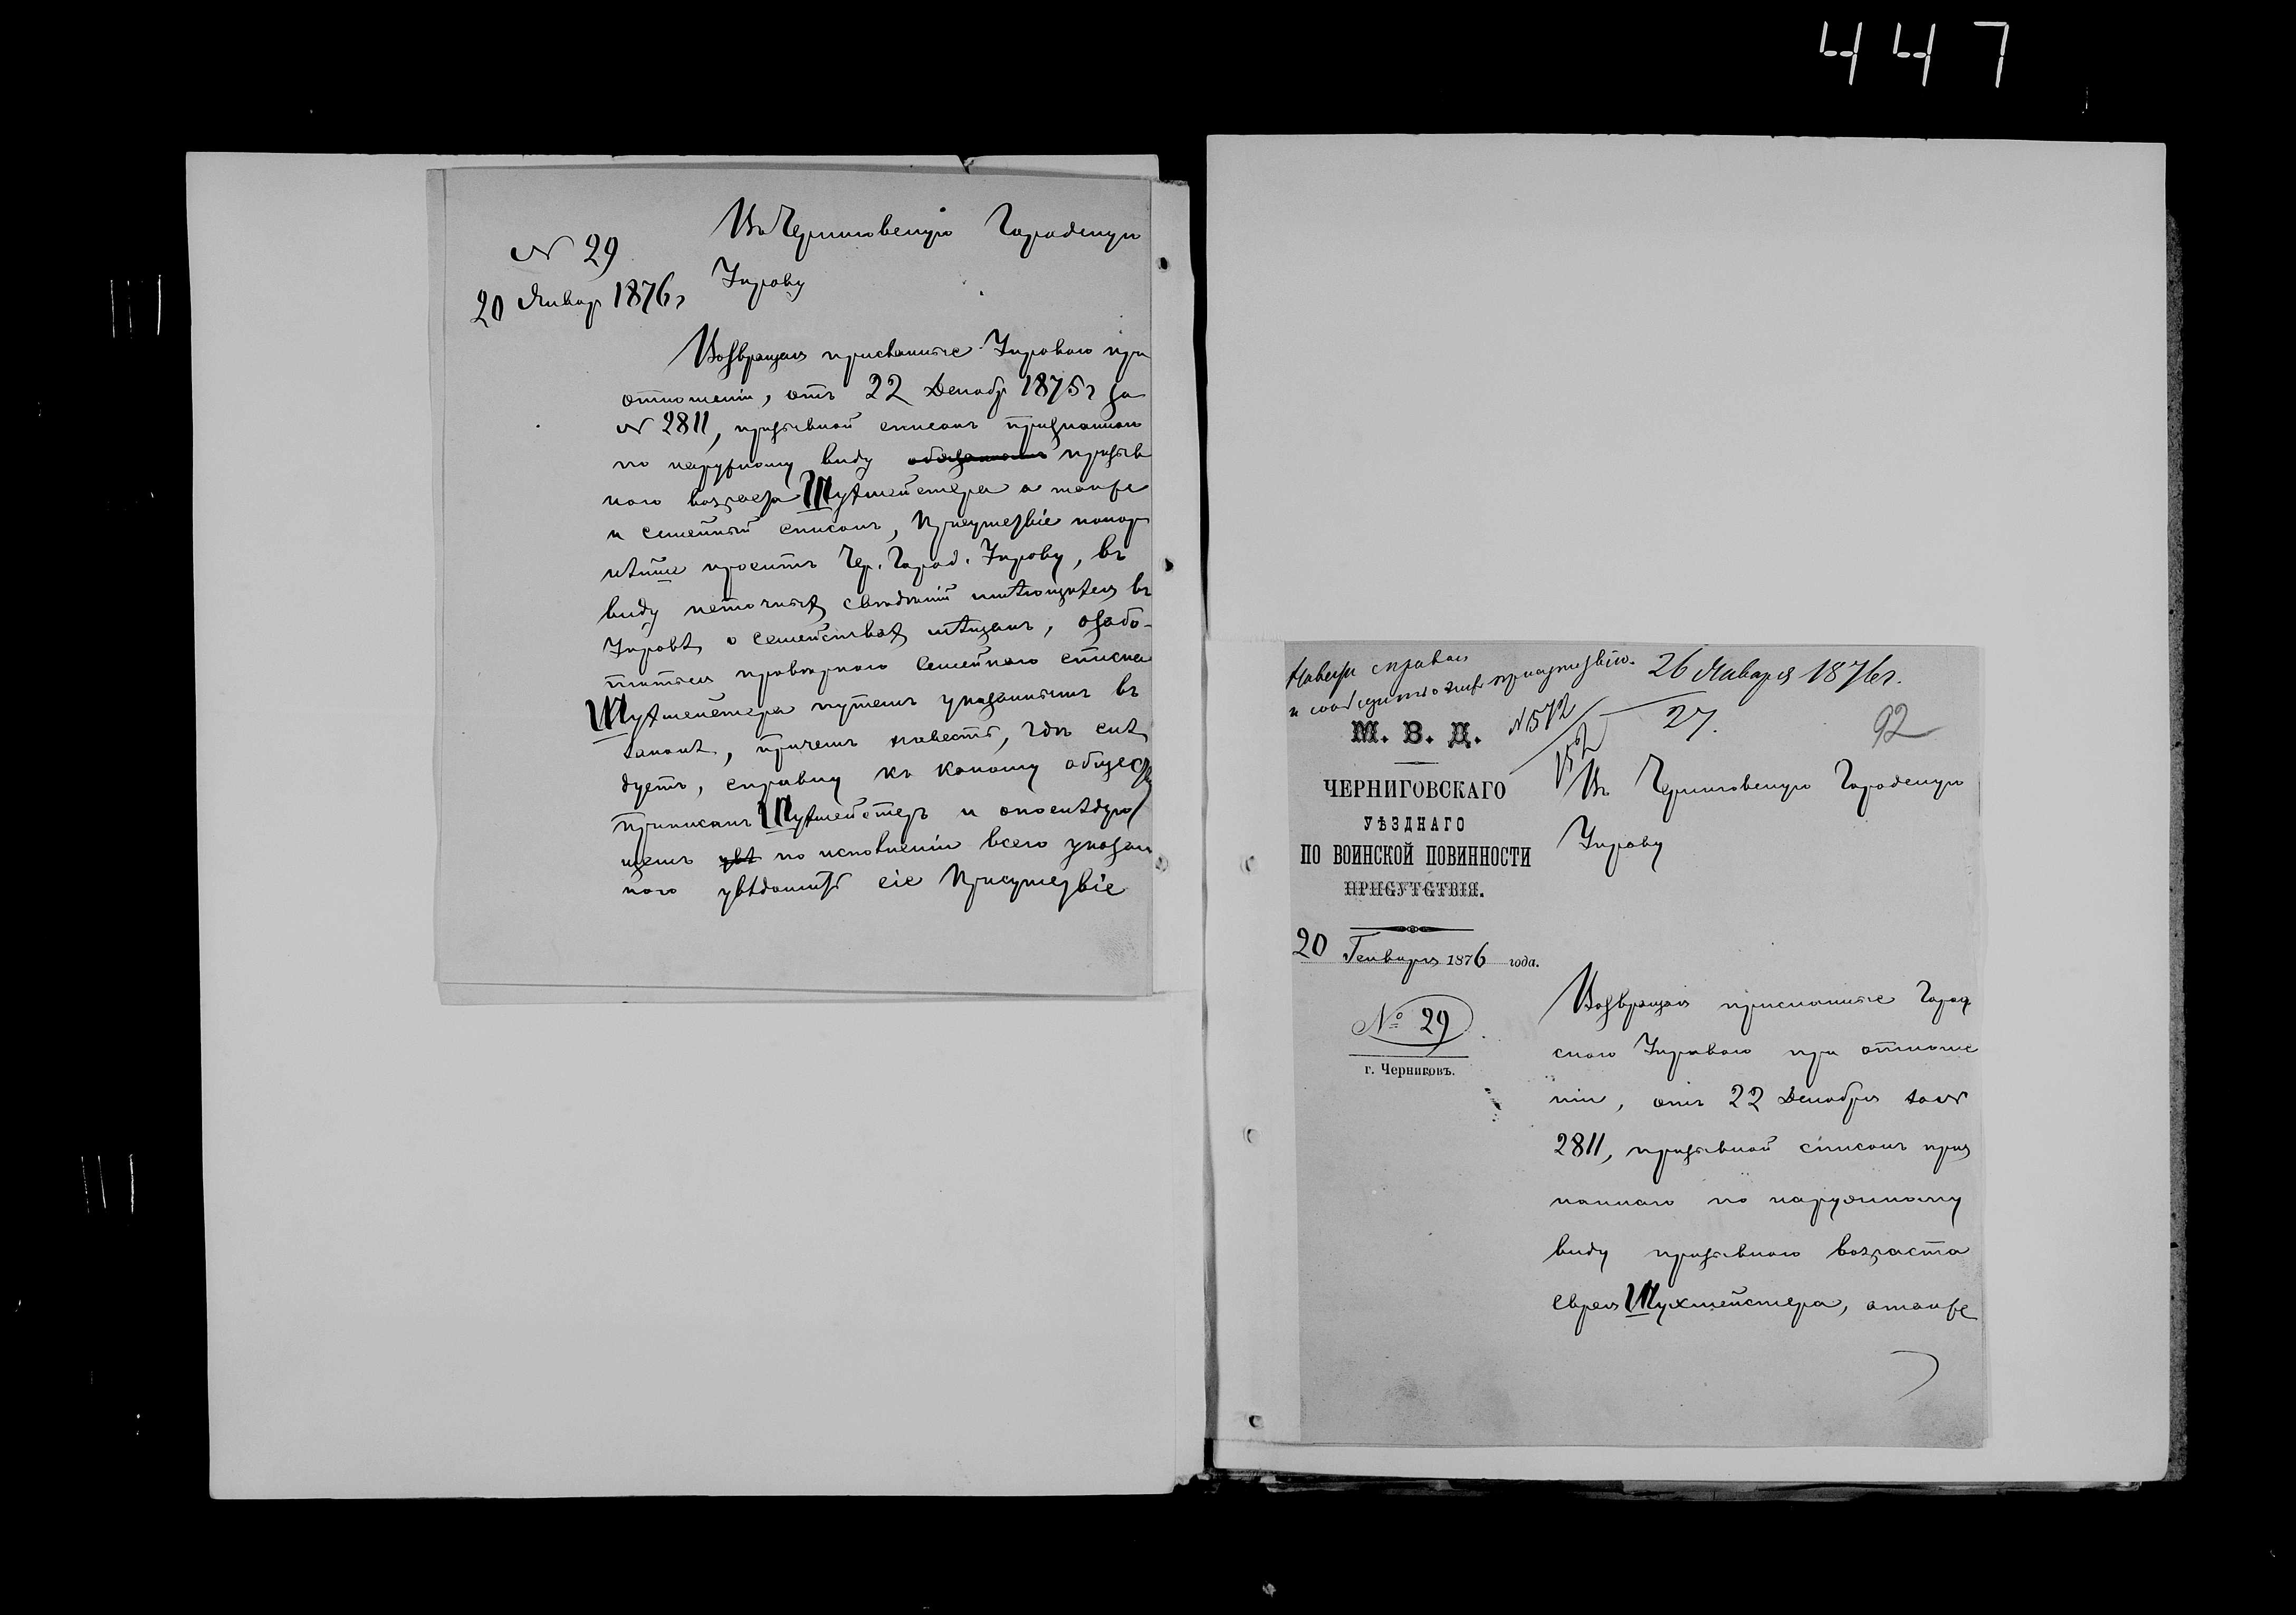 447
№ 29
20 Январ 1876 г
Въ Черниговскую Городскую
Управу
Возвращая присланные Управою при
отношеніи, отъ 22 Декабр 1875 г за
№ 2811, призывной списокъ признаннаго
по наружному виду призыв
ного возраста Шухмейстера а также
и семейный списокъ, Присутствіе покор
нѣйше проситъ Чер. Город. Управу, въ
виду неточныхъ свѣдѣній имѣющихся въ
Управѣ о семействахъ мѣщанъ, озабо-
титься провѣркою семейнаго списка
Шухмейстера путемъ указаннымъ въ
законѣ, причемъ навесть, гдѣ слѣ
дуетъ, справку къ какому обществу
приписанъ Шухмейстеръ и о послѣдую
щемъ увѣ по исполненіи всего указан
ного увѣдомить сіе Присутствіе
Навести справки
и сообщить присутствію. 26 Января 1876 г.
№ 572
27.
92
М. В. Д.
ЧЕРНИГОВСКАГО
УѢЗДНАГО
ПО ВОИНСКОЙ ПОВИННОСТИ
ПРИСУТСТВІЯ.
20 Генваря 1876 года.
№ 29
г. Черниговъ.
Въ Черниговскую Городскую
Управу
Возвращая присланные Город
скою Управою при отноше
ніи, отъ 22 Декабря за №
2811, призывной списокъ приз
наннаго по наружному
виду призывного возраста
еврея Шухмейстера, а также